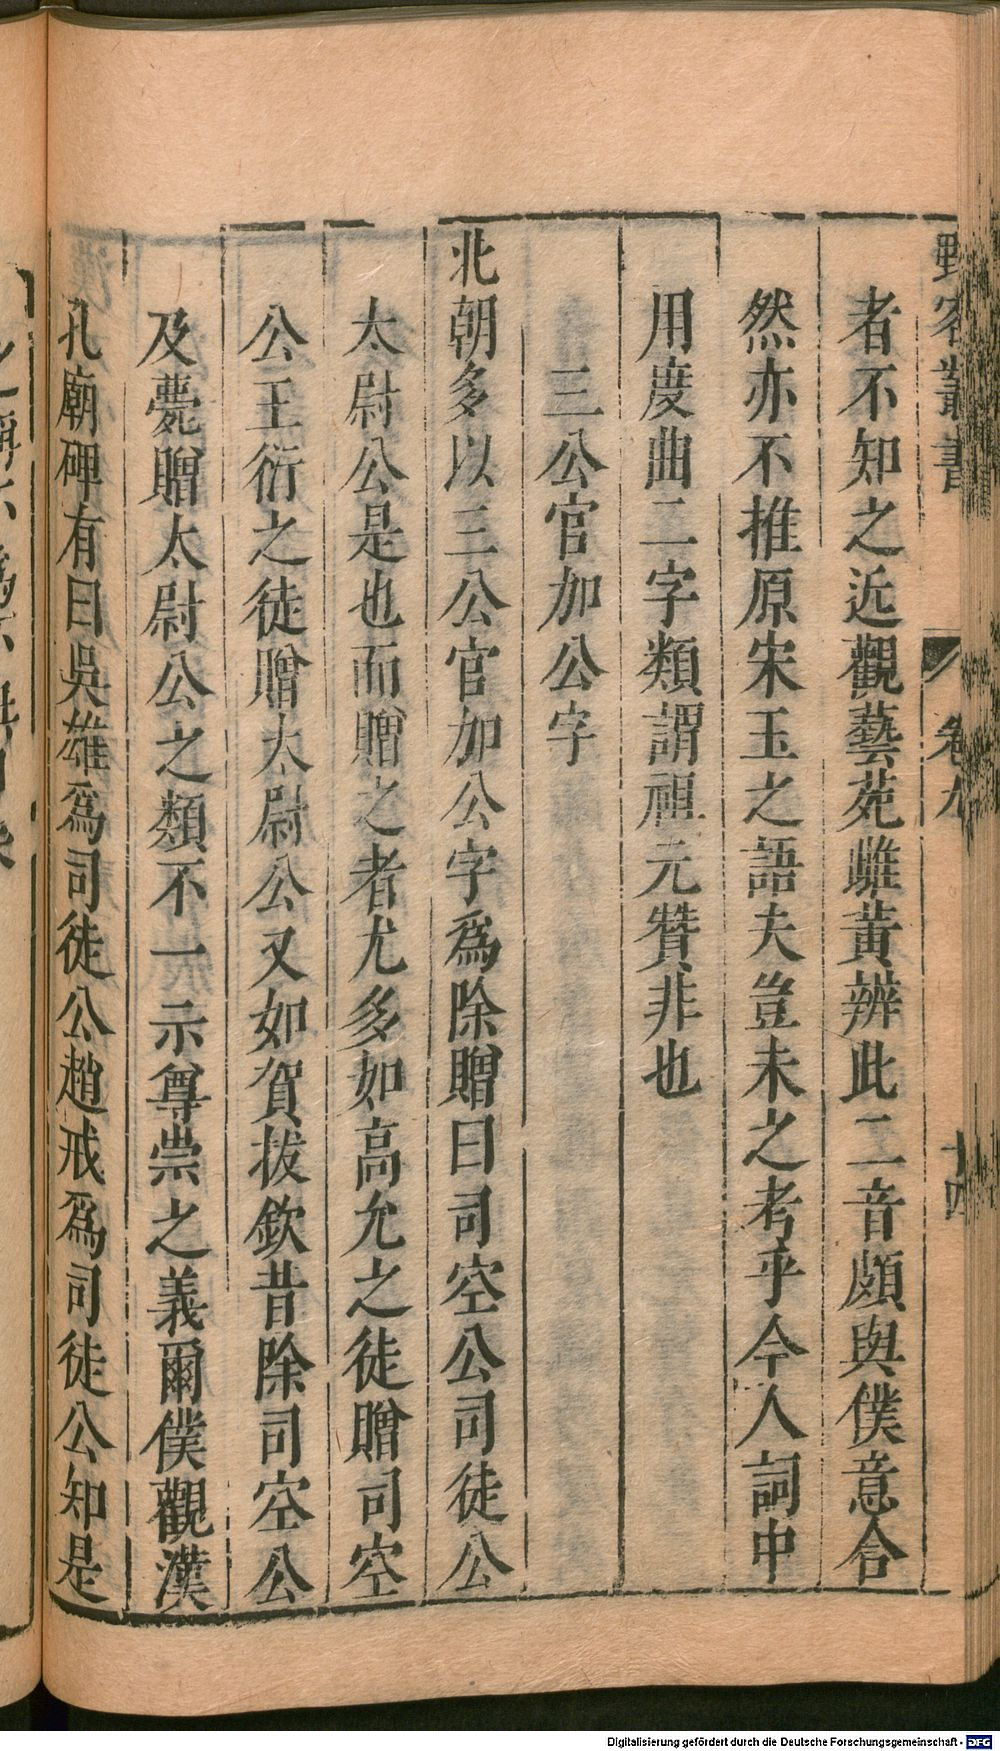 野客叢書 卷九 十四
者不知之近觀藝苑雌黃辨此二音頗與僕意合
然亦不推原宋玉之語夫豈未之考乎今人詞中
用度曲二字類謂祖元贊非也
三公官加公字
北朝多以三公官加公字爲除贈曰司空公司徒公
太尉公是也而贈之者尤多如高允之徒贈司空
公王衍之徒贈太尉公又如賀拔欽昔除司空公
及薨贈太尉公之類不一示尊崇之義爾僕觀漢
孔廟碑有曰吳雄爲司徒公趙戒爲司徒公知是
Digitalisierung gefördert durch die Deutsche Forschungsgemeinschaft - DFG